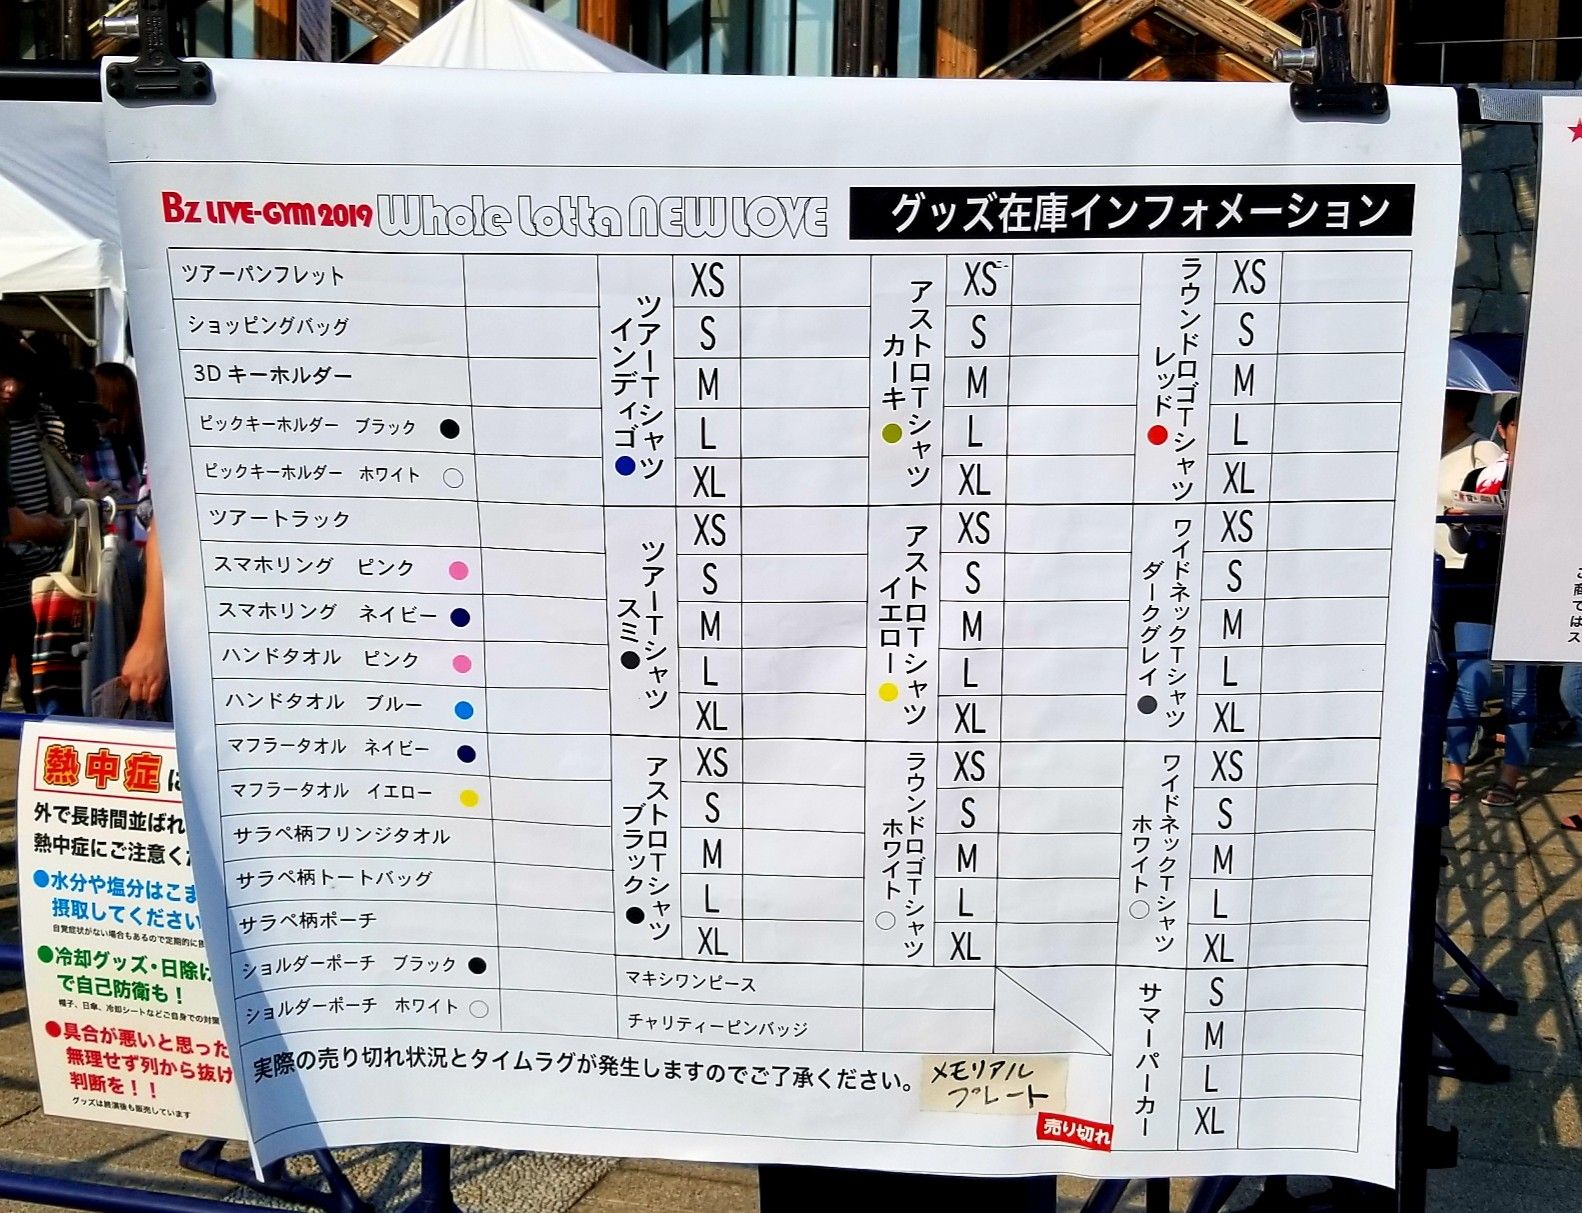 B'z LIVE-GYM 2019 Whole Lotta NEW LOVE
グッズ在庫インフォメーション
ツアーパンフレット
ショッピングバッグ
3Dキーホルダー
ピックキーホルダー ブラック
ピックキーホルダー ホワイト
ツアートラック
スマホリング ピンク
スマホリング ネイビー
ハンドタオル ピンク
ハンドタオル ブルー
マフラータオル ネイビー
マフラータオル イエロー
サラペ柄フリンジタオル
サラペ柄トートバッグ
サラペ柄ポーチ
ショルダーポーチ ブラック
ショルダーポーチ ホワイト
ツアーTシャツ
インディゴ
XS
S
M
L
XL
ツアーTシャツ
スミ
XS
S
M
L
XL
アストロTシャツ
ブラック
XS
S
M
L
XL
マキシワンピース
チャリティーピンバッジ
アストロTシャツ
カーキ
XS
S
M
L
XL
アストロTシャツ
イエロー
XS
S
M
L
XL
ラウンドロゴTシャツ
ホワイト
XS
S
M
L
XL
ラウンドロゴTシャツ
レッド
XS
S
M
L
XL
ワイドネックTシャツ
ダークグレイ
XS
S
M
L
XL
ワイドネックTシャツ
ホワイト
XS
S
M
L
XL
サマーパーカー
S
M
L
XL
実際の売り切れ状況とタイムラグが発生しますのでご了承ください。
メモリアル
プレート
売り切れ
熱中症に
外で長時間並ばれ
熱中症にご注意く
●水分や塩分はこま
摂取してください
自覚症状がない場合もあるので定期的に
●冷却グッズ・日除け
で自己防衛も！
帽子、日傘、冷却シートなどご自身での対策
●具合が悪いと思った
無理せず列から抜け
判断を！！
グッズは終演後も販売しています